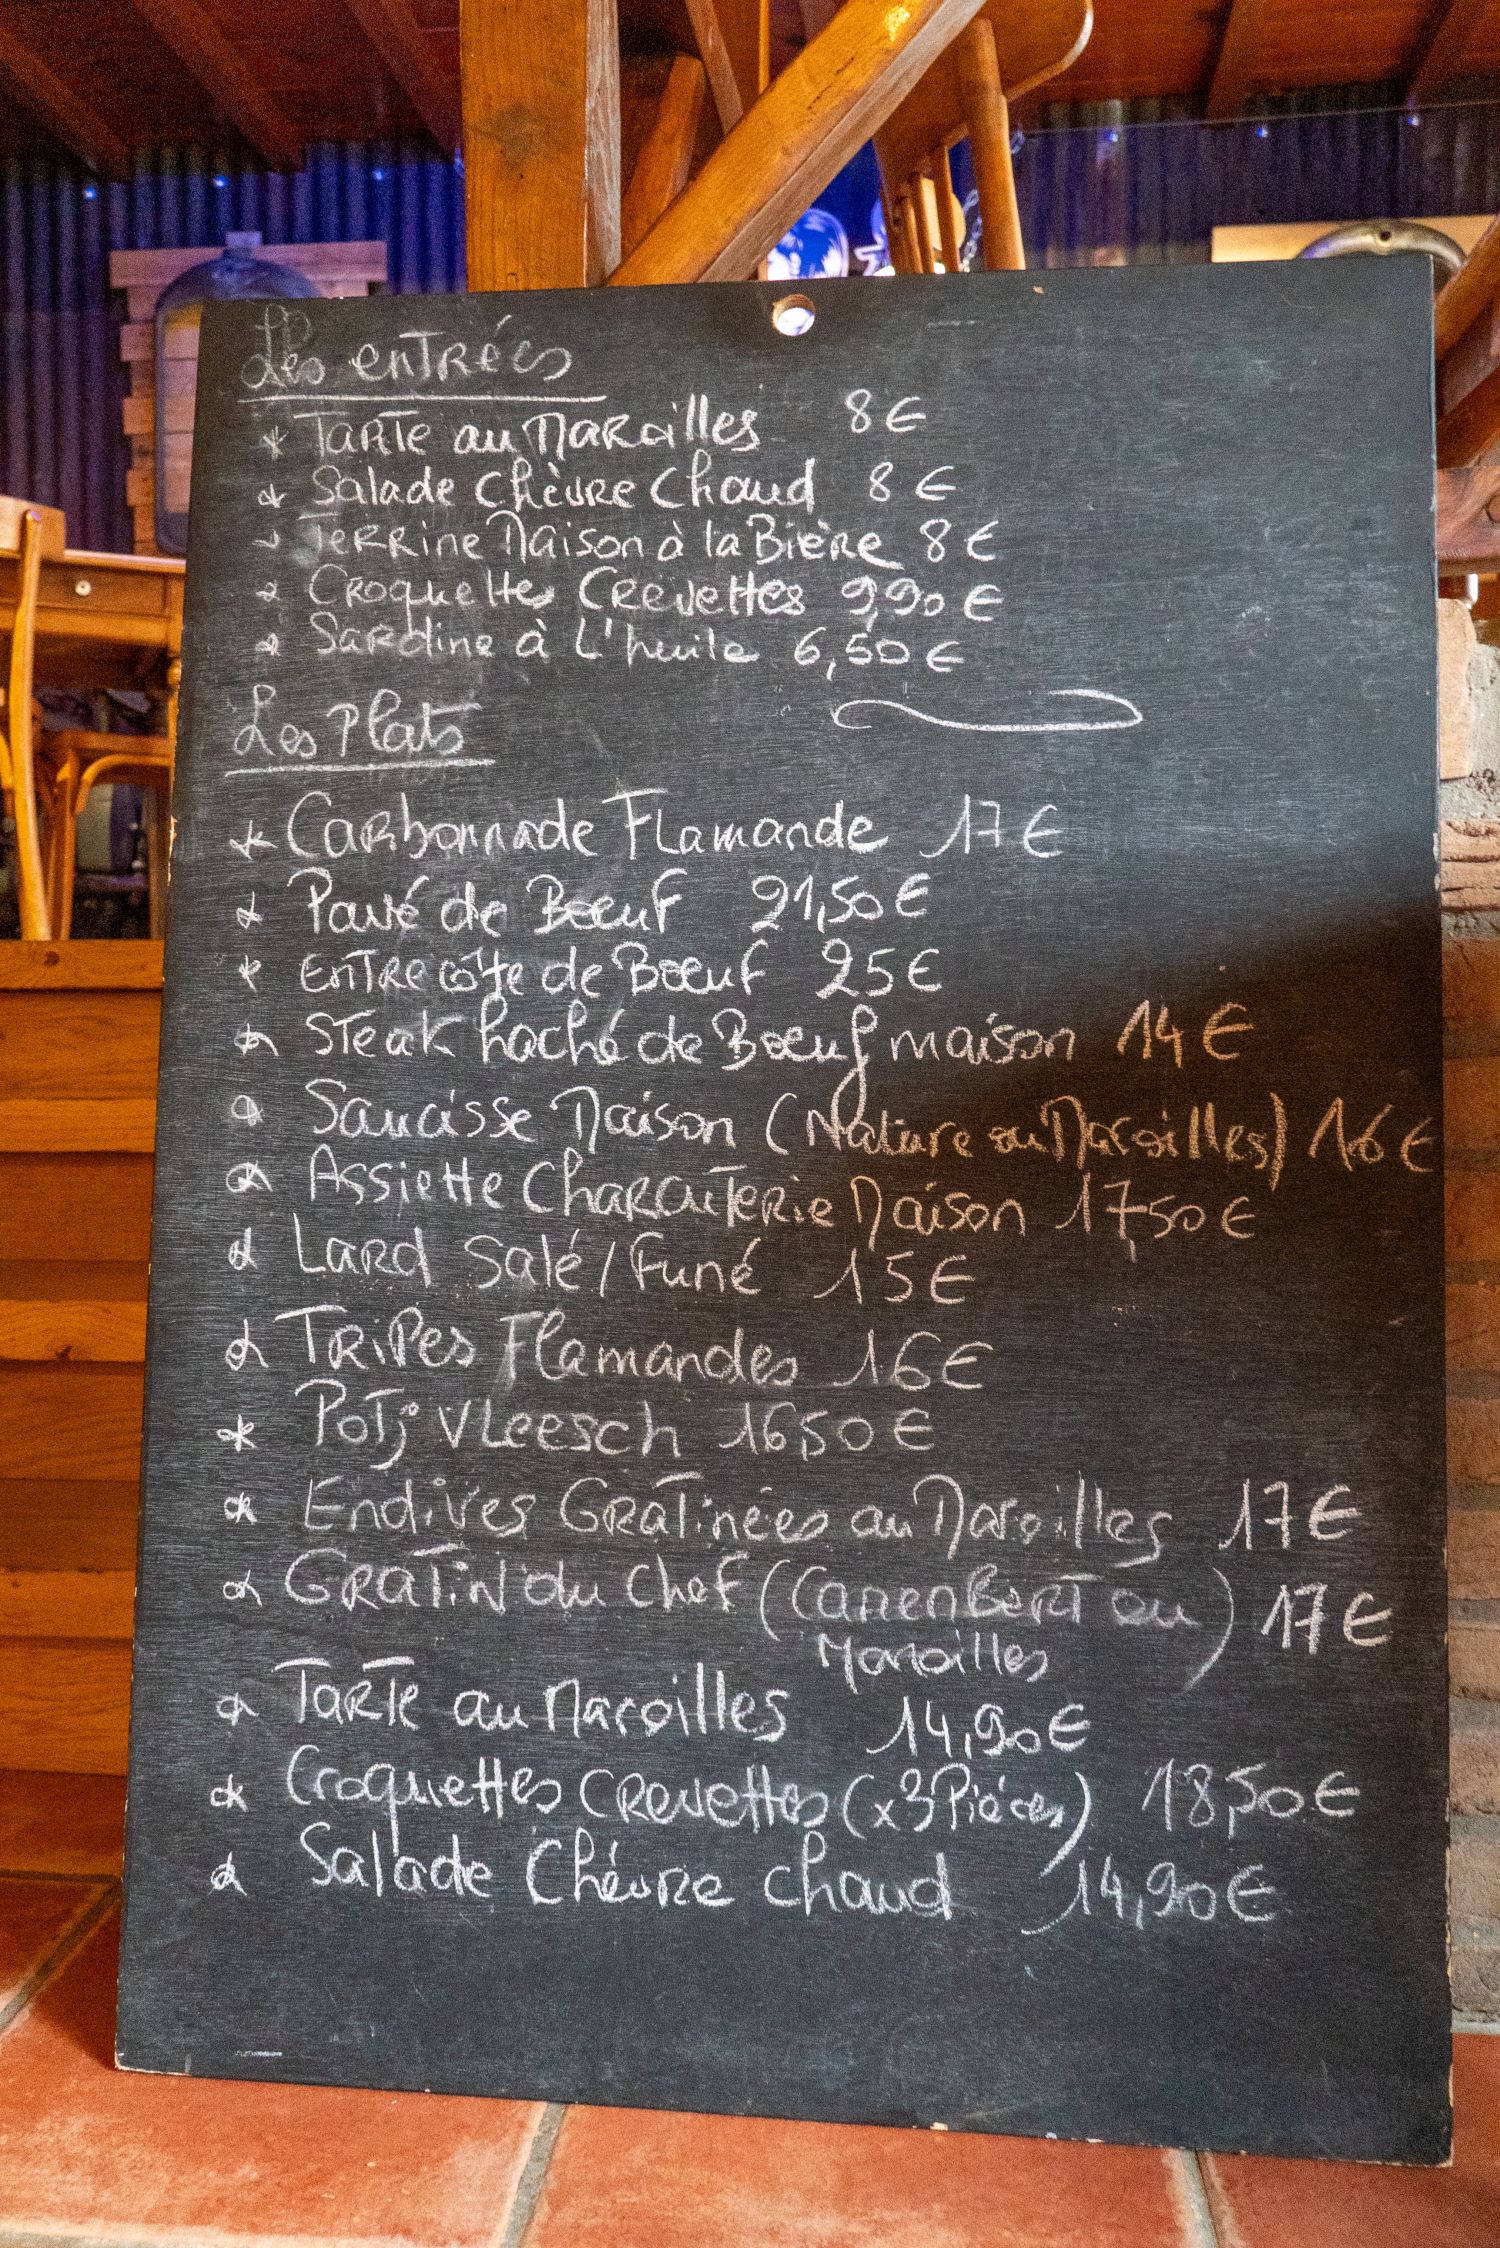 Les entrées
* Tarte au Maroilles 8€
* Salade Chèvre Chaud 8€
* Terrine Maison à la Bière 8€
* Croquettes Crevettes 9,90€
* Sardine à l'huile 6,50€
Les Plats
* Carbonnade Flamande 17€
* Pavé de Boeuf 21,50€
* Entrecôte de Boeuf 25€
* Steak haché de Boeuf maison 14€
* Saucisse Maison (Nature ou Maroilles) 16€
* Assiette Charcuterie Maison 17,50€
* Lard Salé/Fumé 15€
* Tripes Flamandes 16€
* Potj Vleesch 16,50€
* Endives Gratinées au Maroilles 17€
* Gratin du Chef (Camenbert ou) 17€
Maroilles
* Tarte au Maroilles 14,90€
* Croquettes Crevettes (x3 Pièces) 18,50€
* Salade Chèvre chaud 14,90€